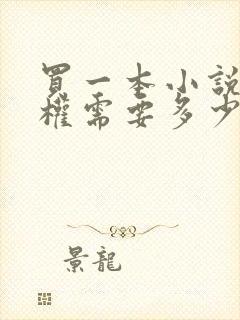 買一本小說
權需要多少
景龍